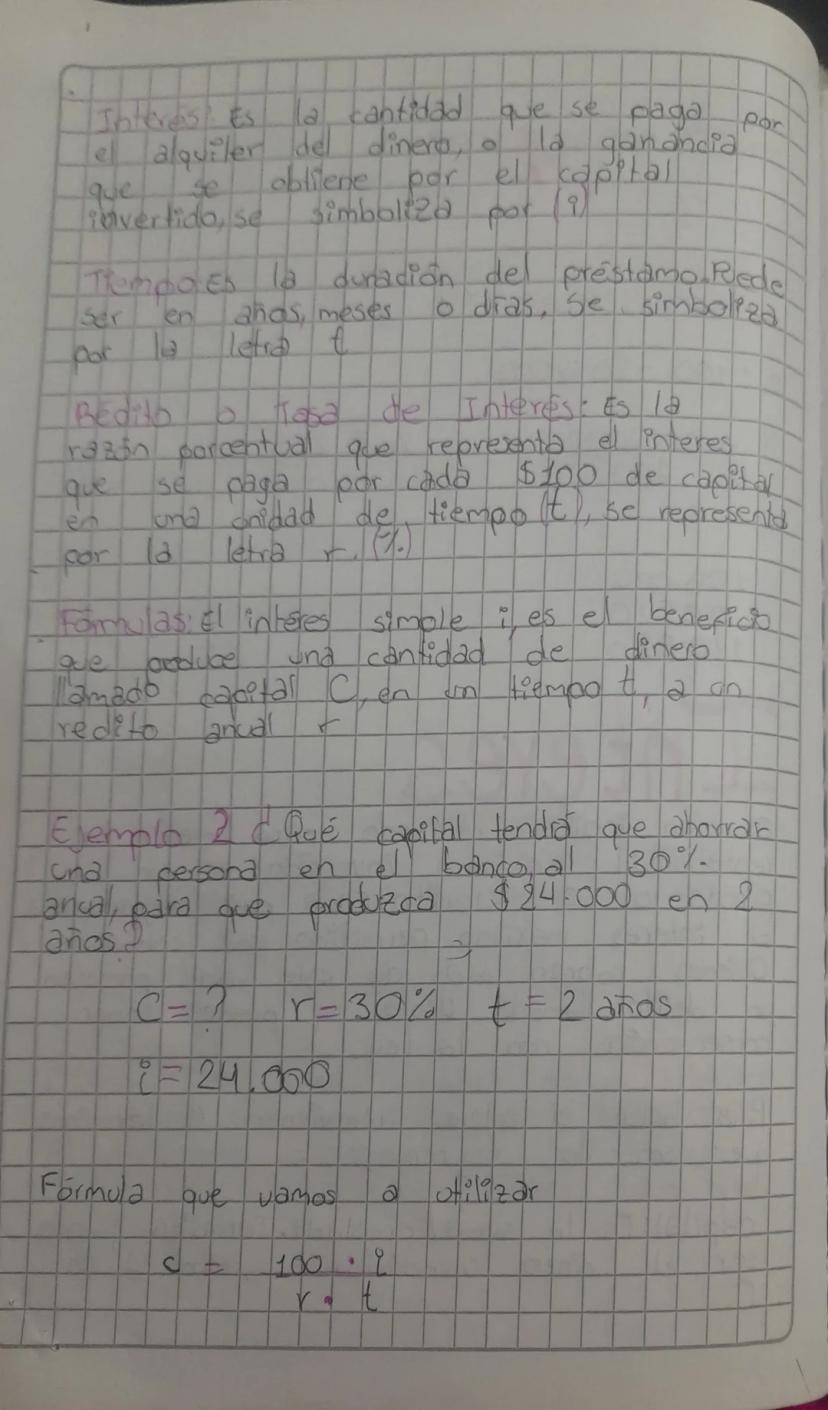 Interés: Es la cantidad que se paga por
el alquiler del dinero, o la ganancia
que se obtiene por el capital
invertido, se simboliza por (i)
Tiempo: Es la duración del préstamo. Puede
ser en años, meses o días, se simboliza
por la letra t
Rédito o tasa de Interés: Es la
razón porcentual que representa el interes
que se paga por cada $100 de capital
en una unidad de tiempo (t), se representa
por la letra r. (%)
Fórmulas: El interés simple i, es el beneficio
que produce una cantidad de dinero
llamado capital C, en un tiempo t, a un
redito anual r
Ejemplo 2 ¿Qué capital tendrá que ahorrar
una persona en el banco, al 30%
anual, para que produzca $24.000 en 2
años?
C = ? r = 30% t = 2 años
i = 24.000
Fórmula que vamos a utilizar
c = 100 . i
r . t